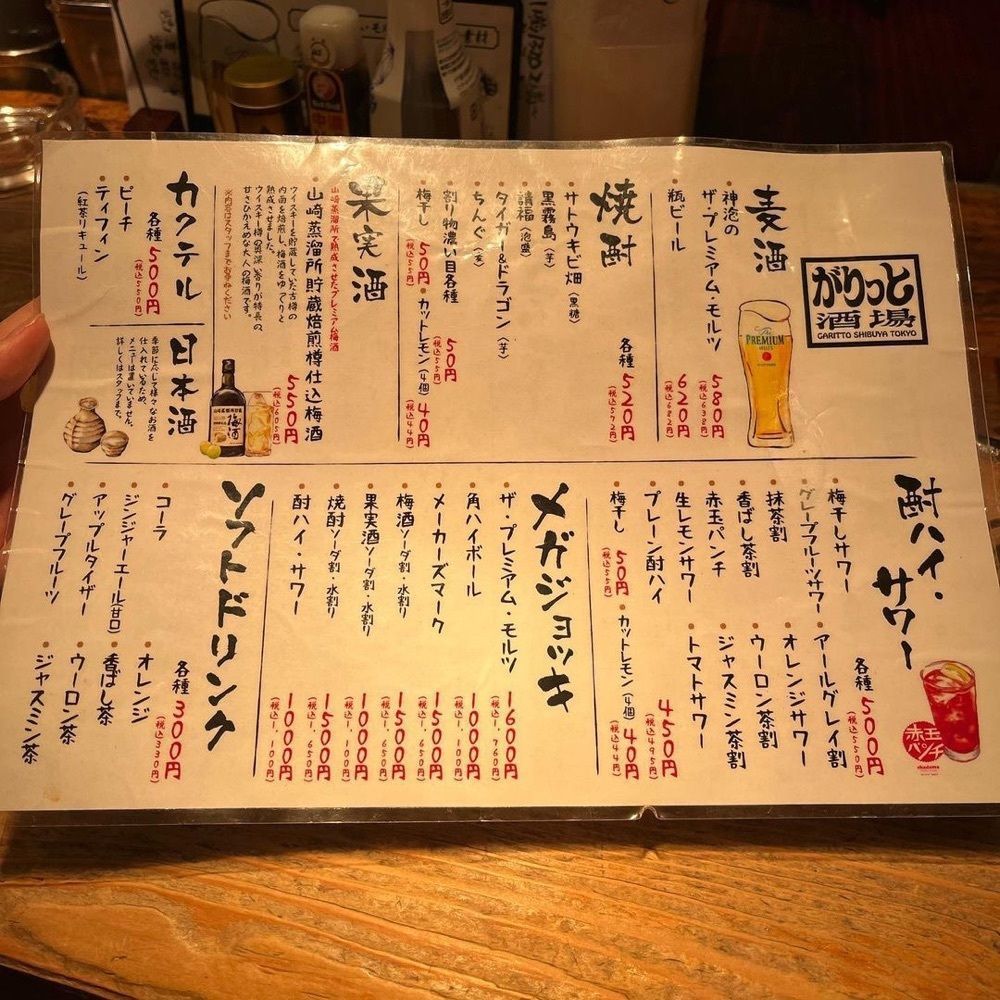 がりっと
酒場
GARITTO SHIBUYA TOKYO
麦酒
神泡の
ザ・プレミアム・モルツ
580円
(税込638円)
瓶ビール
620円
(税込682円)
The
PREMIUM
MALT'S
焼酎
各種 520円
(税込572円)
サトウキビ畑(黒糖)
黒霧島(芋)
請福(泡盛)
タイガー&ドラゴン(芋)
ちんぐ(麦)
割り物濃い目各種 50円
(税込55円)
梅干し 50円
(税込55円)
カットレモン(4個) 40円
(税込44円)
果実酒
山崎蒸溜所で熟成させたプレミアム梅酒
山崎蒸溜所貯蔵焙煎樽仕込梅酒
550円
(税込605円)
ウイスキーを貯蔵していた古樽の
内面を焙煎し、梅酒をゆっくりと
熟成させました。
ウイスキー樽の奥深い香りが特長の
甘さひかえめな大人の梅酒です。
※内容はスタッフまでお尋ねください
梅酒
カクテル
各種 500円
(税込550円)
ピーチ
ティフィン
(紅茶リキュール)
日本酒
季節に応じて様々なお酒を
仕入れているため、
メニューは置いていません。
詳しくはスタッフまで。
酎ハイ・サワー
各種 500円
(税込550円)
梅干しサワー
グレープフルーツサワー
抹茶割
香ばし茶割
赤玉パンチ
生レモンサワー
プレーン酎ハイ
450円
(税込495円)
アールグレイ割
オレンジサワー
ウーロン茶割
ジャスミン茶割
トマトサワー
梅干し 50円
(税込55円)
カットレモン(4個) 40円
(税込44円)
赤玉
パンチ
akadama
メガジョッキ
ザ・プレミアム・モルツ 1600円
(税込1,760円)
角ハイボール 1000円
(税込1,100円)
メーカーズマーク 1500円
(税込1,650円)
梅酒ソーダ割・水割り 1500円
(税込1,650円)
果実酒ソーダ割・水割り 1000円
(税込1,100円)
焼酎ソーダ割・水割り 1500円
(税込1,650円)
酎ハイ・サワー 1000円
(税込1,100円)
ソフトドリンク
各種 300円
(税込330円)
コーラ
ジンジャーエール(甘口)
アップルタイザー
グレープフルーツ
オレンジ
香ばし茶
ウーロン茶
ジャスミン茶